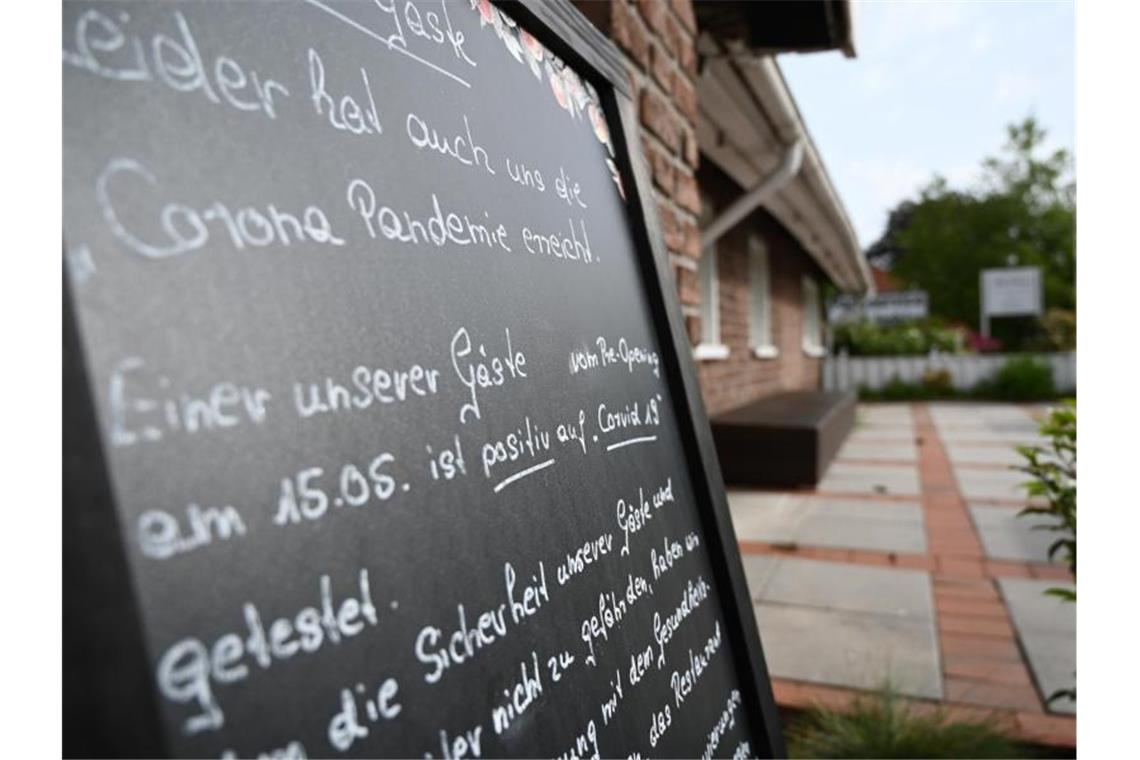 Gäste
Leider hat auch uns die
„Corona Pandemie erreicht.
Einer unserer Gäste vom Pre-Opening
am 15.05. ist positiv auf „Corvid 19"
getestet.
die Sicherheit unserer Gäste und
nicht zu gefährden, haben wir
mit dem Gesundheits.
das Restaurant